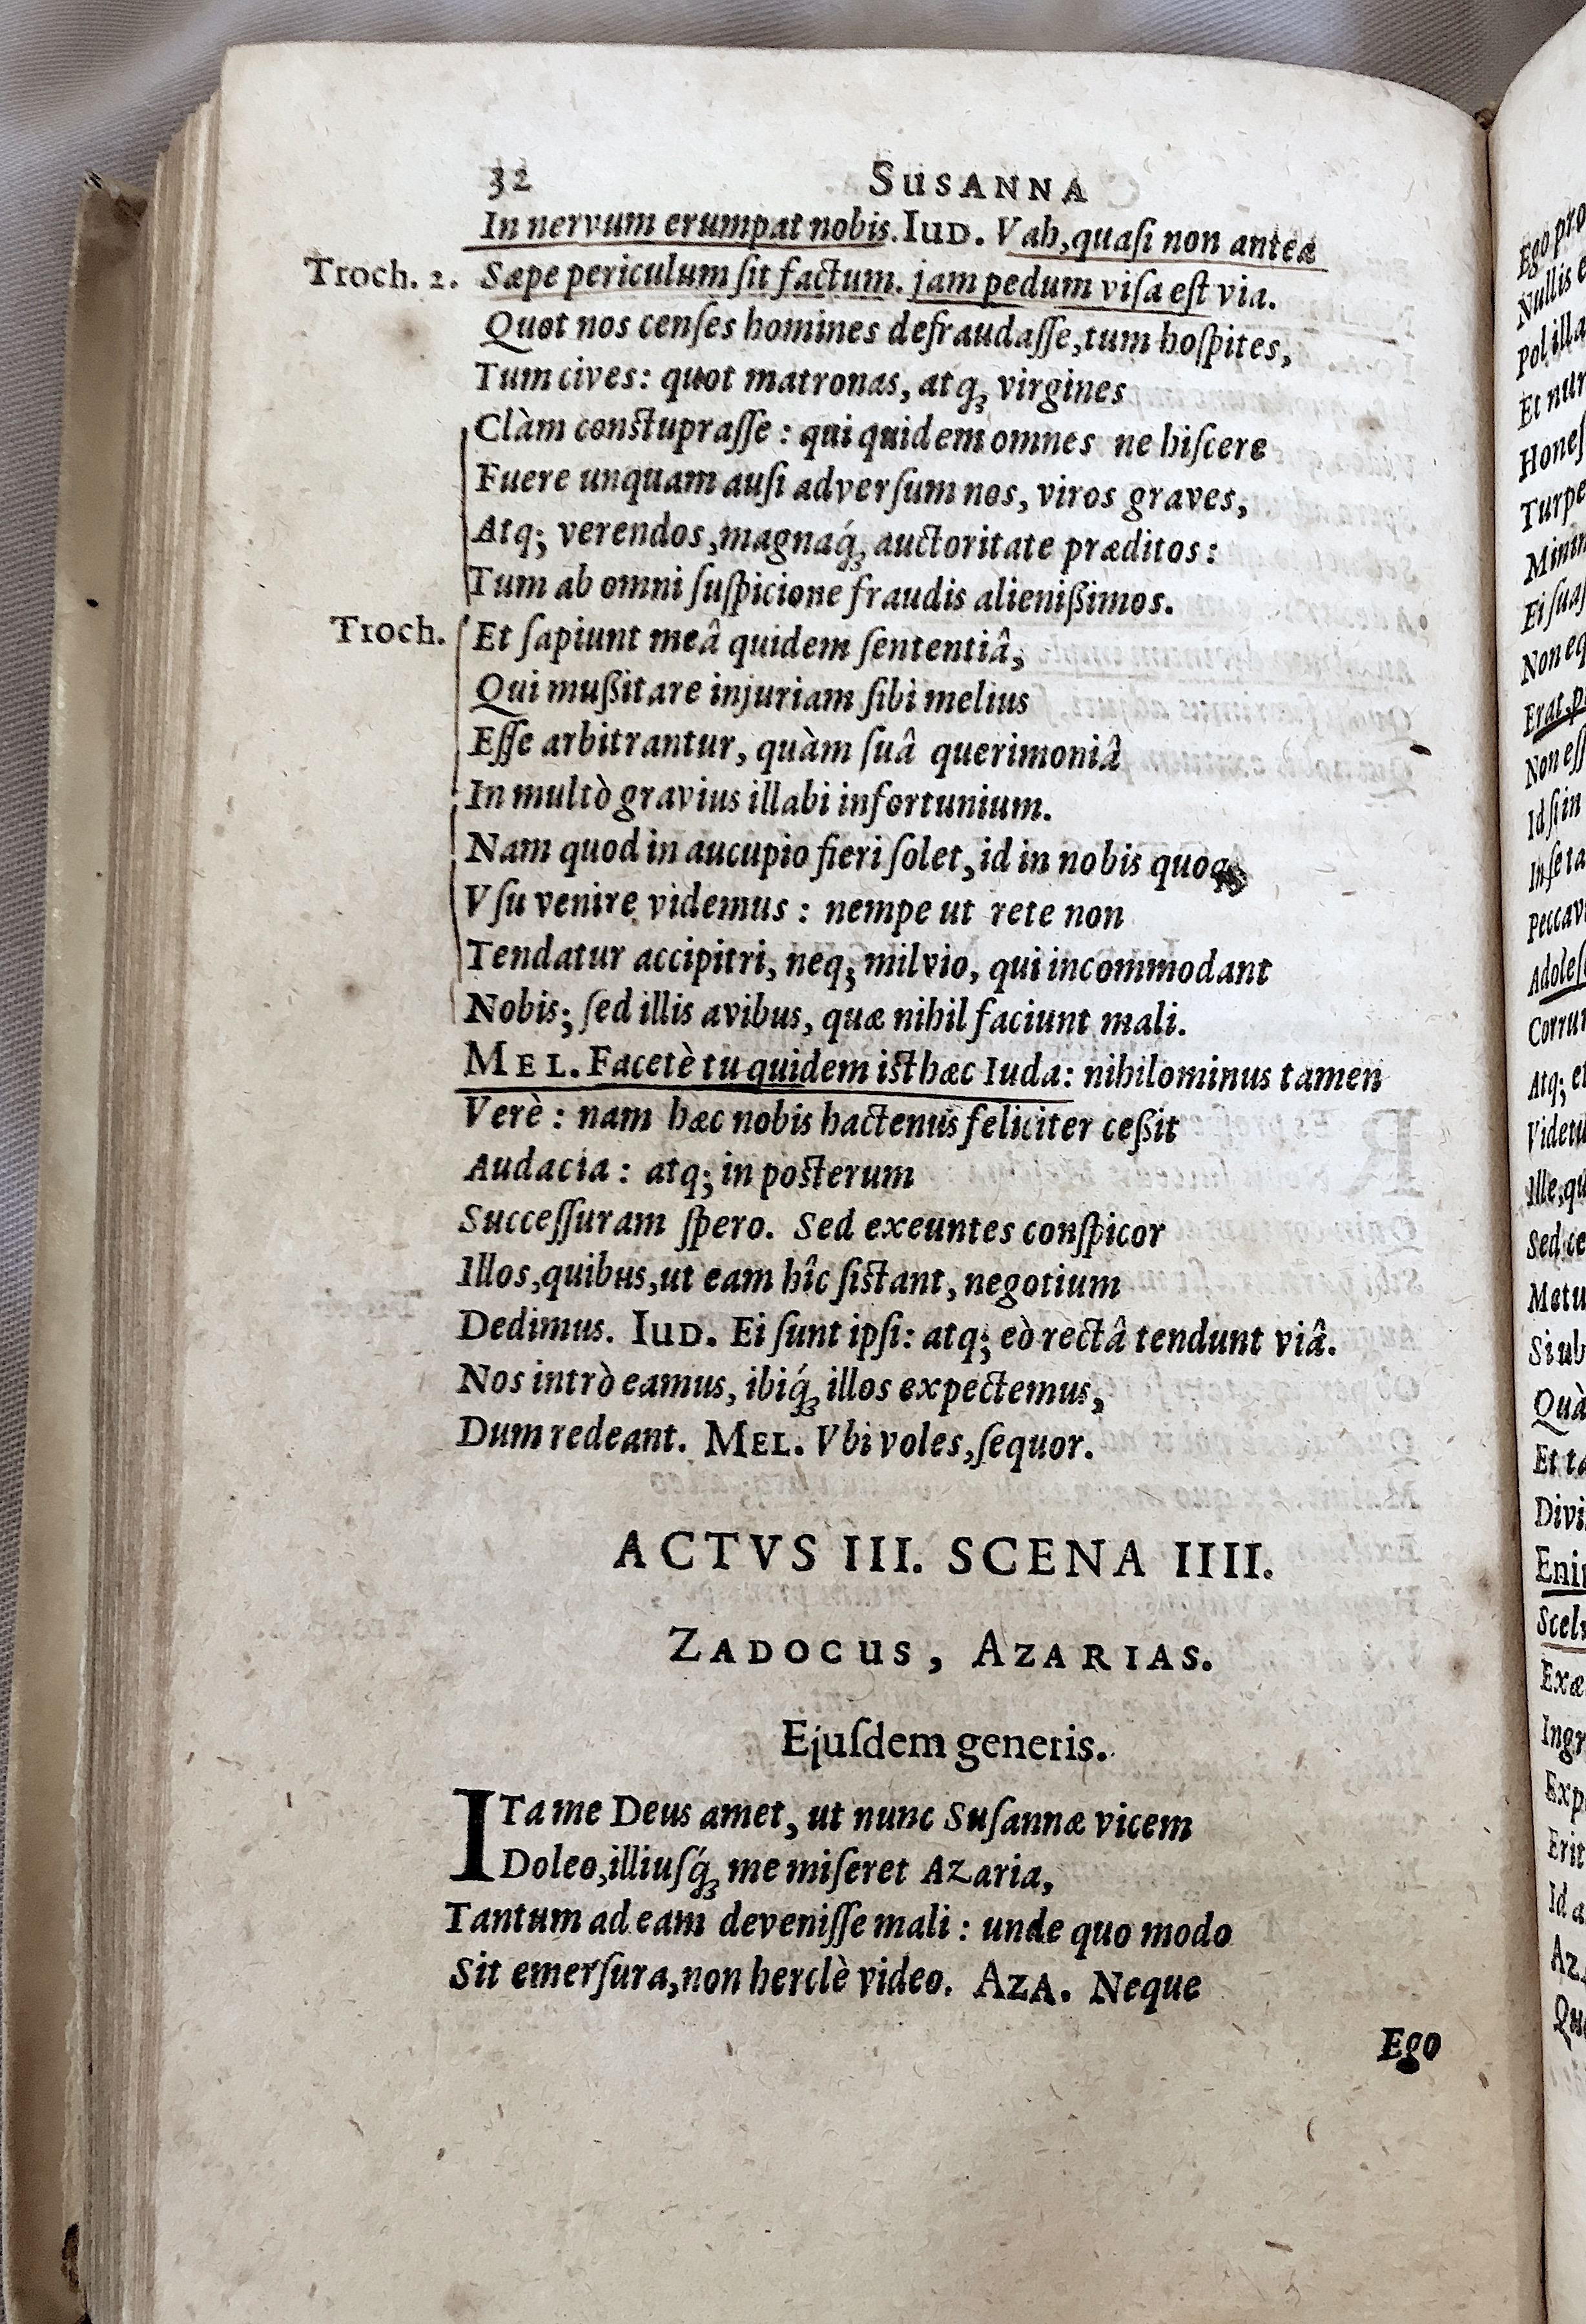 32 SUSANNA
In nervum erumpat nobis. IUD. Vah, quaſi non anteà
Troch. 2. Sæpe periculum ſit factum. jam pedum viſa eſt via.
Quot nos cenſes homines defraudaſſe, tum hoſpites,
Tum cives: quot matronas, atq́ꝫ virgines
Clàm conſtupraſſe: qui quidem omnes ne hiſcere
Fuere unquam auſi adverſum nos, viros graves,
Atq; verendos, magnaq́ꝫ auctoritate præditos:
Tum ab omni ſuſpicione fraudis alienißimos.
Troch. Et ſapiunt meâ quidem ſententiâ,
Qui mußitare injuriam ſibi melius
Eſſe arbitrantur, quàm ſuâ querimoniâ
In multò gravius illabi infortunium.
Nam quod in aucupio fieri ſolet, id in nobis
Vſu venire videmus: nempe ut rete non
Tendatur accipitri, neq; milvio, qui incommodant
Nobis; ſed illis avibus, quæ nihil faciunt mali.
MEL. Facetè tu quidem iſthæc Iuda: nihilominus tamen
Verè: nam hæc nobis hactenus feliciter ceßit
Audacia: atq; in poſterum
Succeſſuram ſpero. Sed exeuntes conſpicor
Illos, quibus, ut eam hîc ſiſtant, negotium
Dedimus. IUD. Ei ſunt ipſi: atq; eò rectâ tendunt viâ.
Nos intrò eamus, ibiq́ꝫ illos expectemus,
Dum redeant. MEL. Vbi voles, ſequor.
ACTVS III. SCENA IIII.
ZADOCUS, AZARIAS.
Ejuſdem generis.
ITa me Deus amet, ut nunc Suſannæ vicem
Doleo, illiuſq́ꝫ me miſeret Azaria,
Tantum ad eam deveniſſe mali: unde quo modo
Sit emerſura, non herclè video. AZA. Neque
Ego